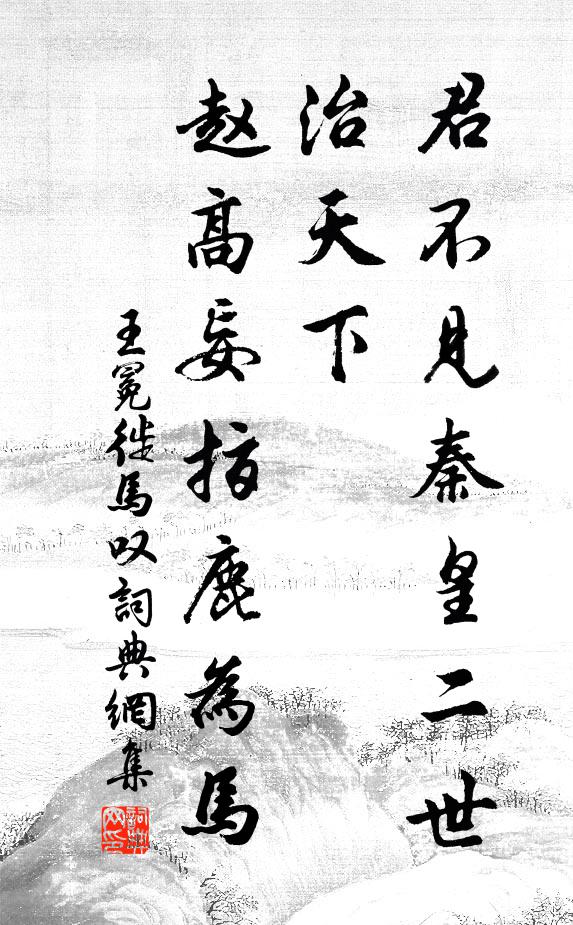 君不見秦皇二世
治天下
赵高妄指鹿為馬
王冕徙馬叹詞典網集